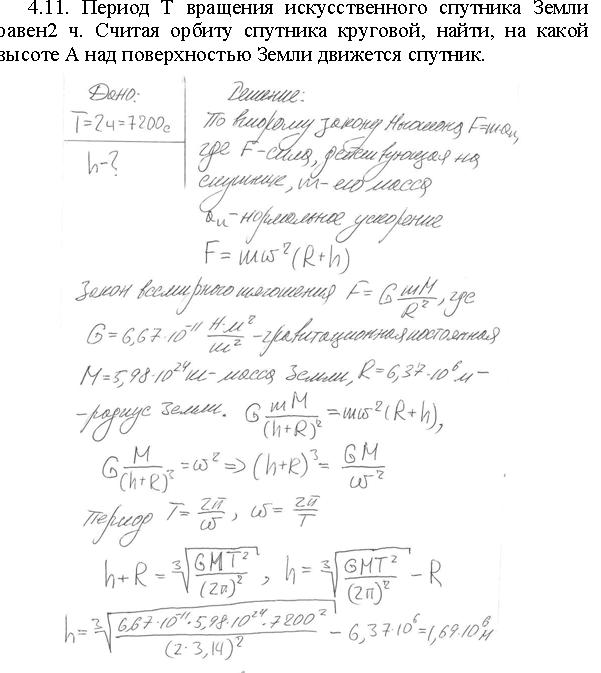 4.11. Период Т вращения искусственного спутника Земли
равен2 ч. Считая орбиту спутника круговой, найти, на какой
высоте А над поверхностью Земли движется спутник.
Дано:
T=2ч=7200с
h-?
Решение:
По второму закону Ньютона F=maₙ,
где F-сила, действующая на
спутник, m-его масса
aₙ-нормальное ускорение
F=mω²(R+h)
Закон всемирного тяготения F=G mM/R², где
G=6,67·10⁻¹¹ Н·м²/кг² -гравитационная постоянная
M=5,98·10²⁴кг-масса Земли, R=6,37·10⁶м-
-радиус Земли. G mM/(h+R)²=mω²(R+h),
G M/(h+R)³=ω² => (h+R)³= GM/ω²
Период T=2π/ω, ω=2π/T
h+R=∛(GMT²/(2π)²), h=∛(GMT²/(2π)²)-R
h=∛(6,67·10⁻¹¹·5,98·10²⁴·7200²/(2·3,14)²) - 6,37·10⁶=1,69·10⁶м